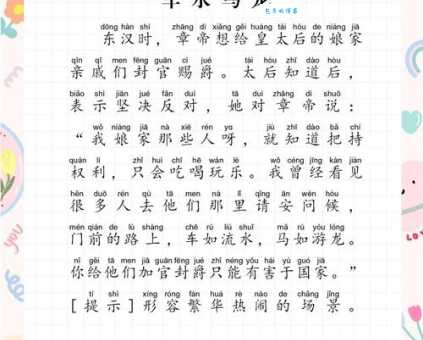 车水马龙
dōng hàn shí zhāng dì xiǎng gěi huáng tài hòu de niáng jiā
东汉时，章帝想给皇太后的娘家
qīn qī men fēng guān cì jué tài hòu zhī dào hòu
亲戚们封官赐爵。太后知道后，
biǎo shì jiān jué fǎn duì tā duì zhāng dì shuō
表示坚决反对，她对章帝说：
wǒ niáng jiā nà xiē rén ya jiù zhī dào bǎ chí
“我娘家那些人呀，就知道把持
quán lì zhǐ huì chī hē wán lè wǒ céng jīng kàn jiàn
权利，只会吃喝玩乐。我曾经看见
hěn duō rén qù tā men nà lǐ qǐng ān wèn hòu
很多人去他们那里请安问候，
mén qián de lù shàng chē rú liú shuǐ mǎ rú yóu lóng
门前的路上，车如流水，马如游龙。
nǐ gěi tā men jiā guān fēng jué zhǐ néng yǒu hài yú guó jiā
你给他们加官封爵只能有害于国家。”
tí shì xíng róng fán huá rè nào de chǎng jǐng
[提示]形容繁华热闹的场景。
you
LO